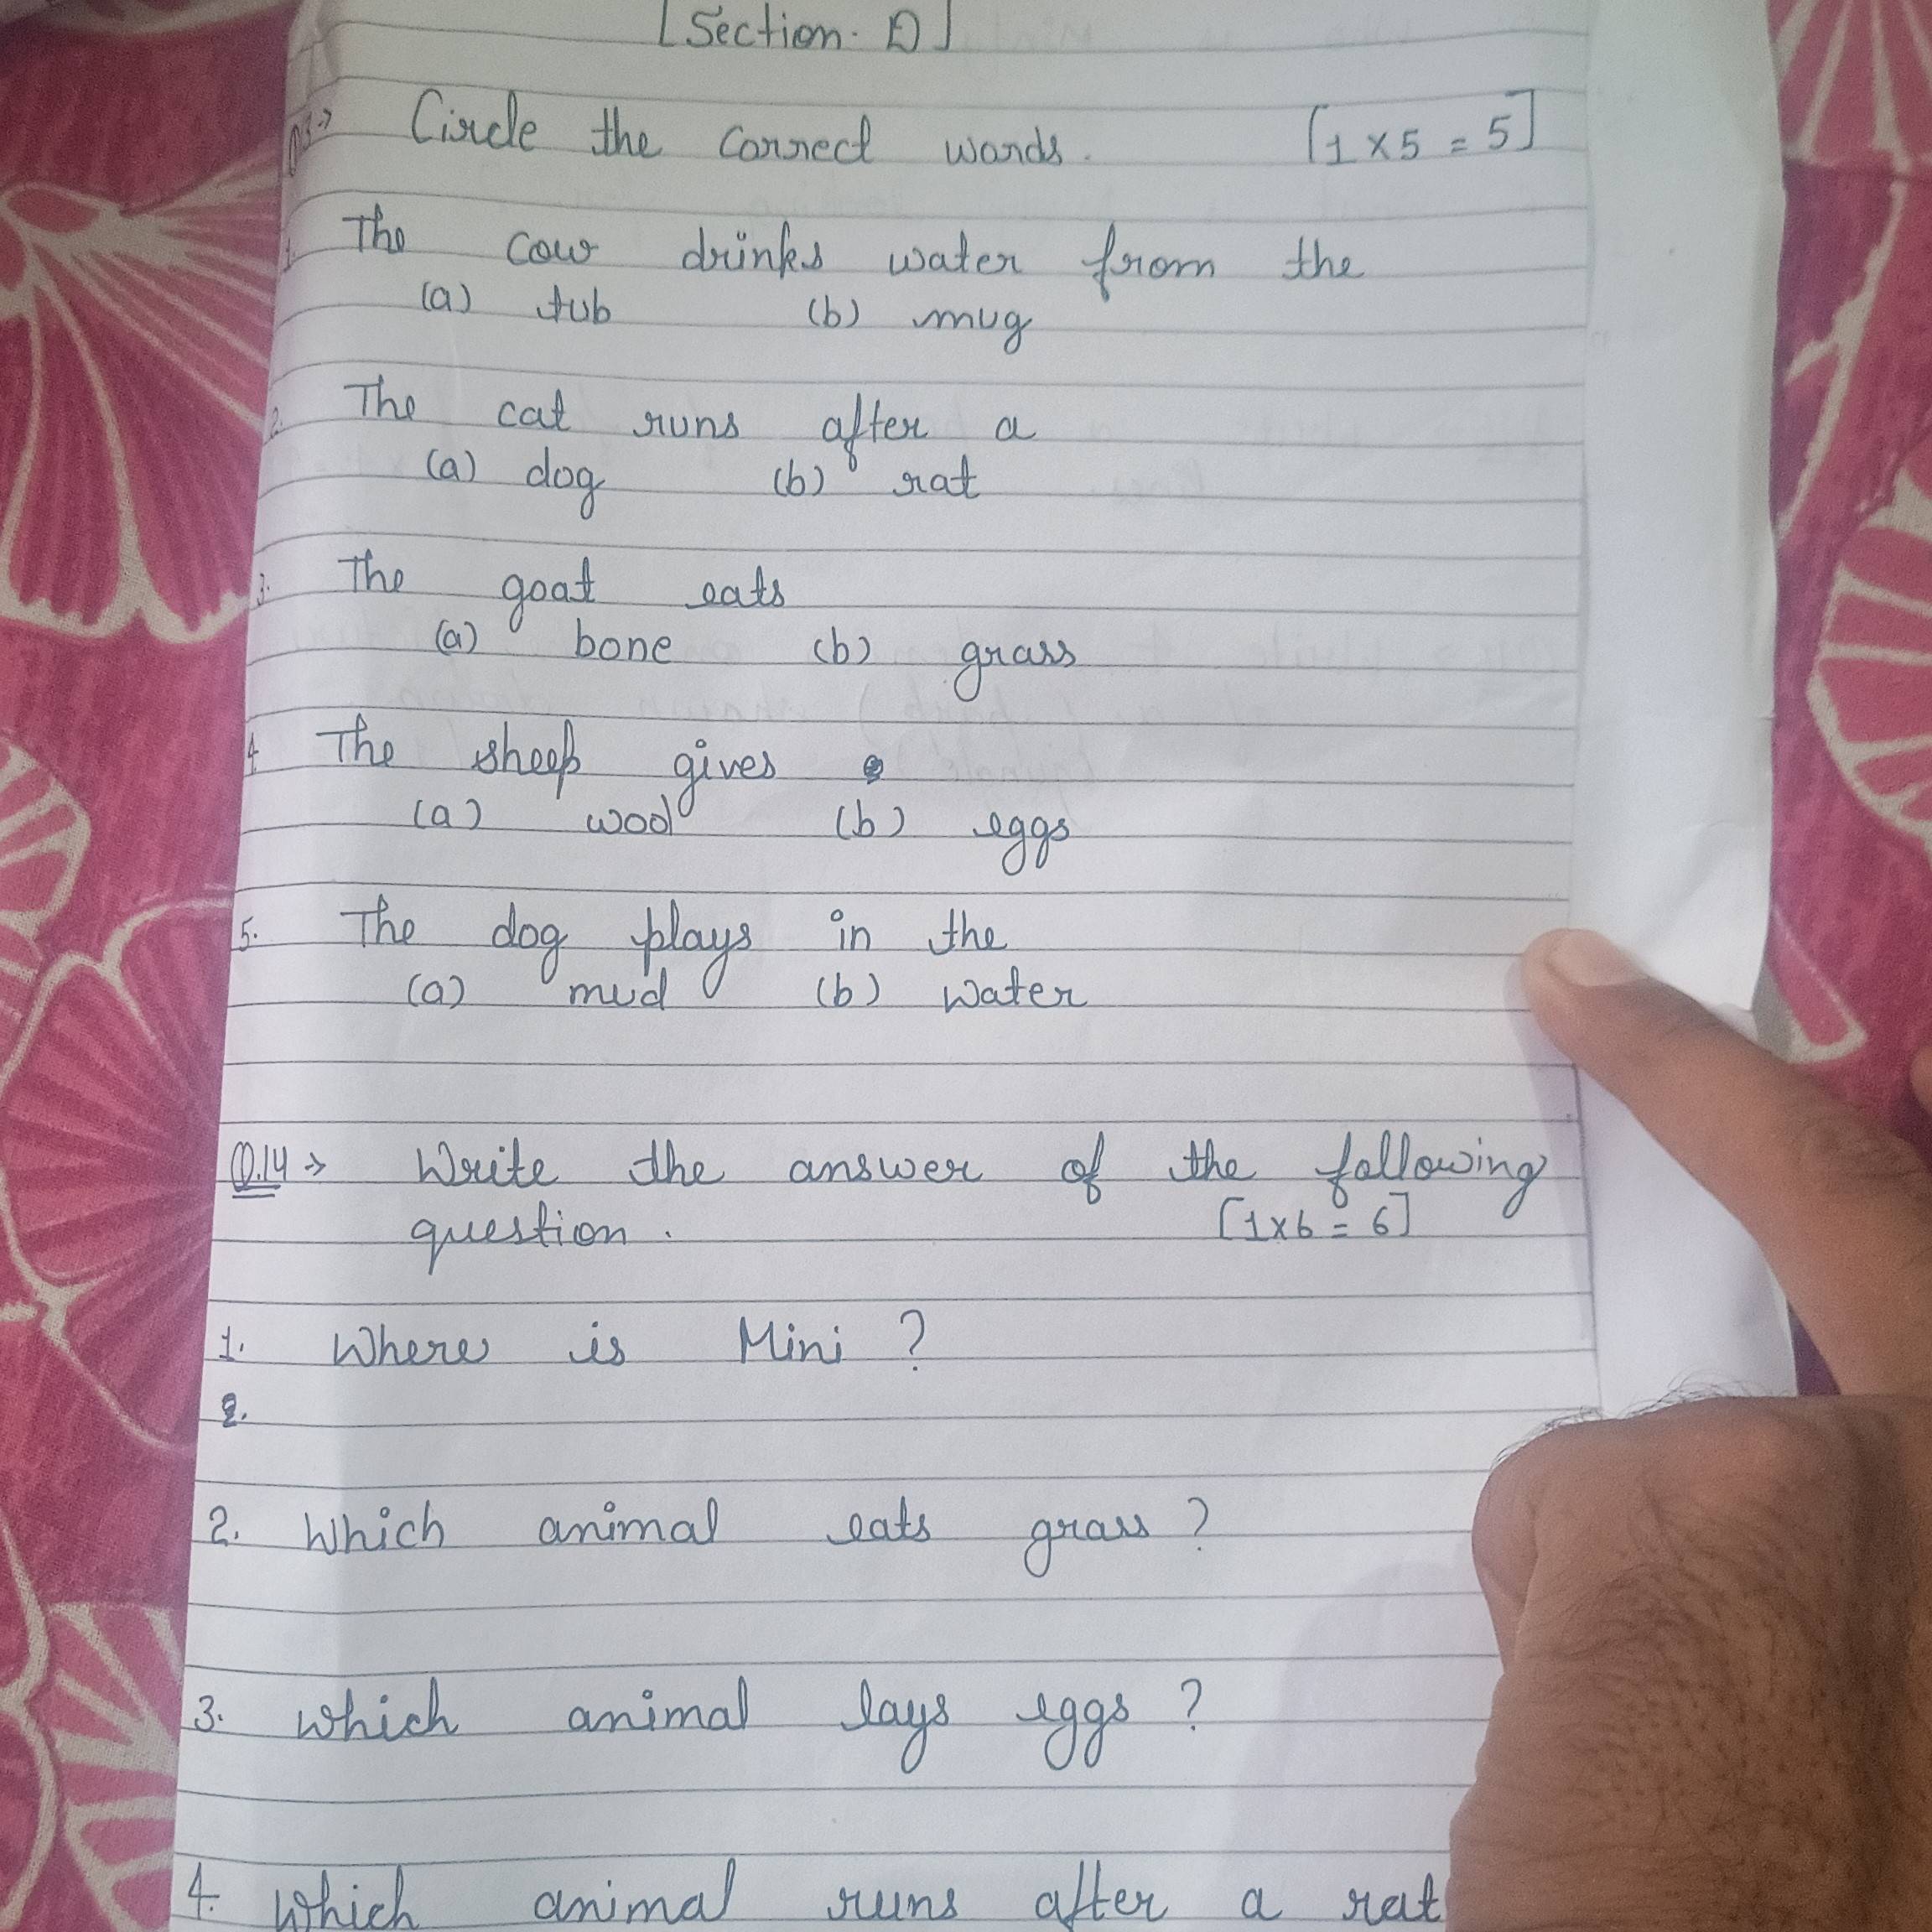 [Section. D]
Q13→ Circle the correct words. [1 x 5 = 5]
1. The cow drinks water from the
(a) tub (b) mug
2. The cat runs after a
(a) dog (b) rat
3. The goat eats
(a) bone (b) grass
4. The sheep gives
(a) wool (b) eggs
5. The dog plays in the
(a) mud (b) water
Q.14→ Write the answer of the following
question. [1x6 = 6]
1. Where is Mini ?
2.
2. Which animal eats grass ?
3. Which animal lays eggs ?
4. Which animal runs after a rat